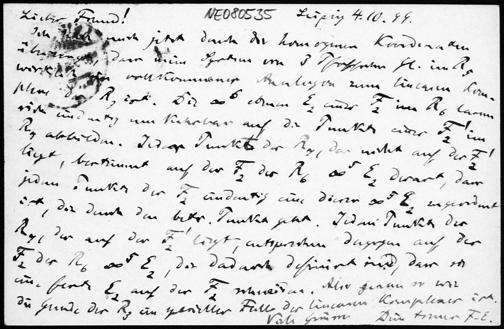 Lieber Freund! NE080535 Leipzig 4.10.99.
Ich mich jetzt durch die homogenen Koordinaten
überzeugt, dass dein System von
wirklich ein vollkommenes Analogon zum linearen Kom-
plexe des R₃ ist. Die ∞⁶ ebenen E₂ einer F₂ im R₆ lassen
sich eindeutig umkehrbar auf die Punkte einer F₂' im
R₇ abbilden. Jeder Punkt des R₇, der nicht auf der F₂'
liegt, bestimmt auf der F₂ des R₆ ∞⁵ E₂ derart, dass
jedem Punkte der F₂ eindeutig eine dieser ∞⁵ E₂ zugeordnet
ist, die durch den betr. Punkt geht. Jedem Punkte des
R₇, der auf der F₂' liegt, entsprechen dagegen auf der
F₂ des R₆ ∞⁵ E₂, die dadurch definiert sind, dass sie
eine feste E₂ auf der F₂ schneiden. Also genau so wie
die Gerade des R₃ ein specieller Fall des linearen Komplexes ist.
Viele Grüsse Dein treuer F.E.